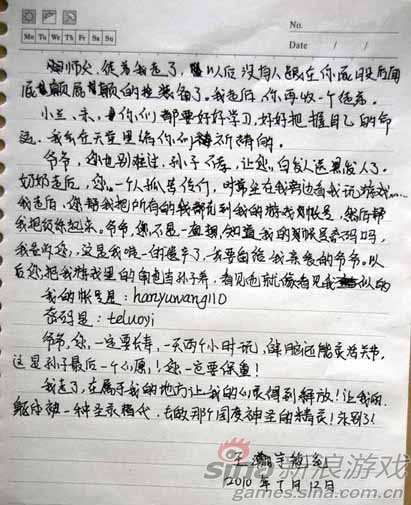 No.
Mo Tu We Th Fr Sa Su
Date / /
师父,徒弟我走了,以后没有人跟在你屁股后面
屁颠屁颠的捡装备了。我走后,你再收一个徒弟。
小 你们都要好好学习,好好把握自己的命
运。我会在天堂里给你们祈祷的。
爷爷,您也别难过,孙子不孝,让您白发人送黑发人了。
奶奶走后,您一个人孤苦伶仃,时常坐在我旁边看我玩游戏……
我走后,您帮我把所有的钱都充到我的游戏帐号里,然后帮
我把级练起来。爷爷,您不是一直想知道我的帐号密码吗,
我告诉您,这是我唯一的遗产了,我要留给我亲爱的爷爷。以
后您把我游戏里的角色当孙子养,看见他就像看见我似的
我的帐号是:hanyuwang110
密码是:teluoyi
爷爷,您一定要长寿,一天两个小时玩,健脑还能灵活关节。
这是孙子最后一个心愿!您一定要保重!
我走了,在属于我的地方让我的心灵得到解放!让我的
躯体被一种圣永替代,去做那个国度神圣的精灵!永别了!
2010年7月12日
sina新浪游戏
games.sina.com.cn